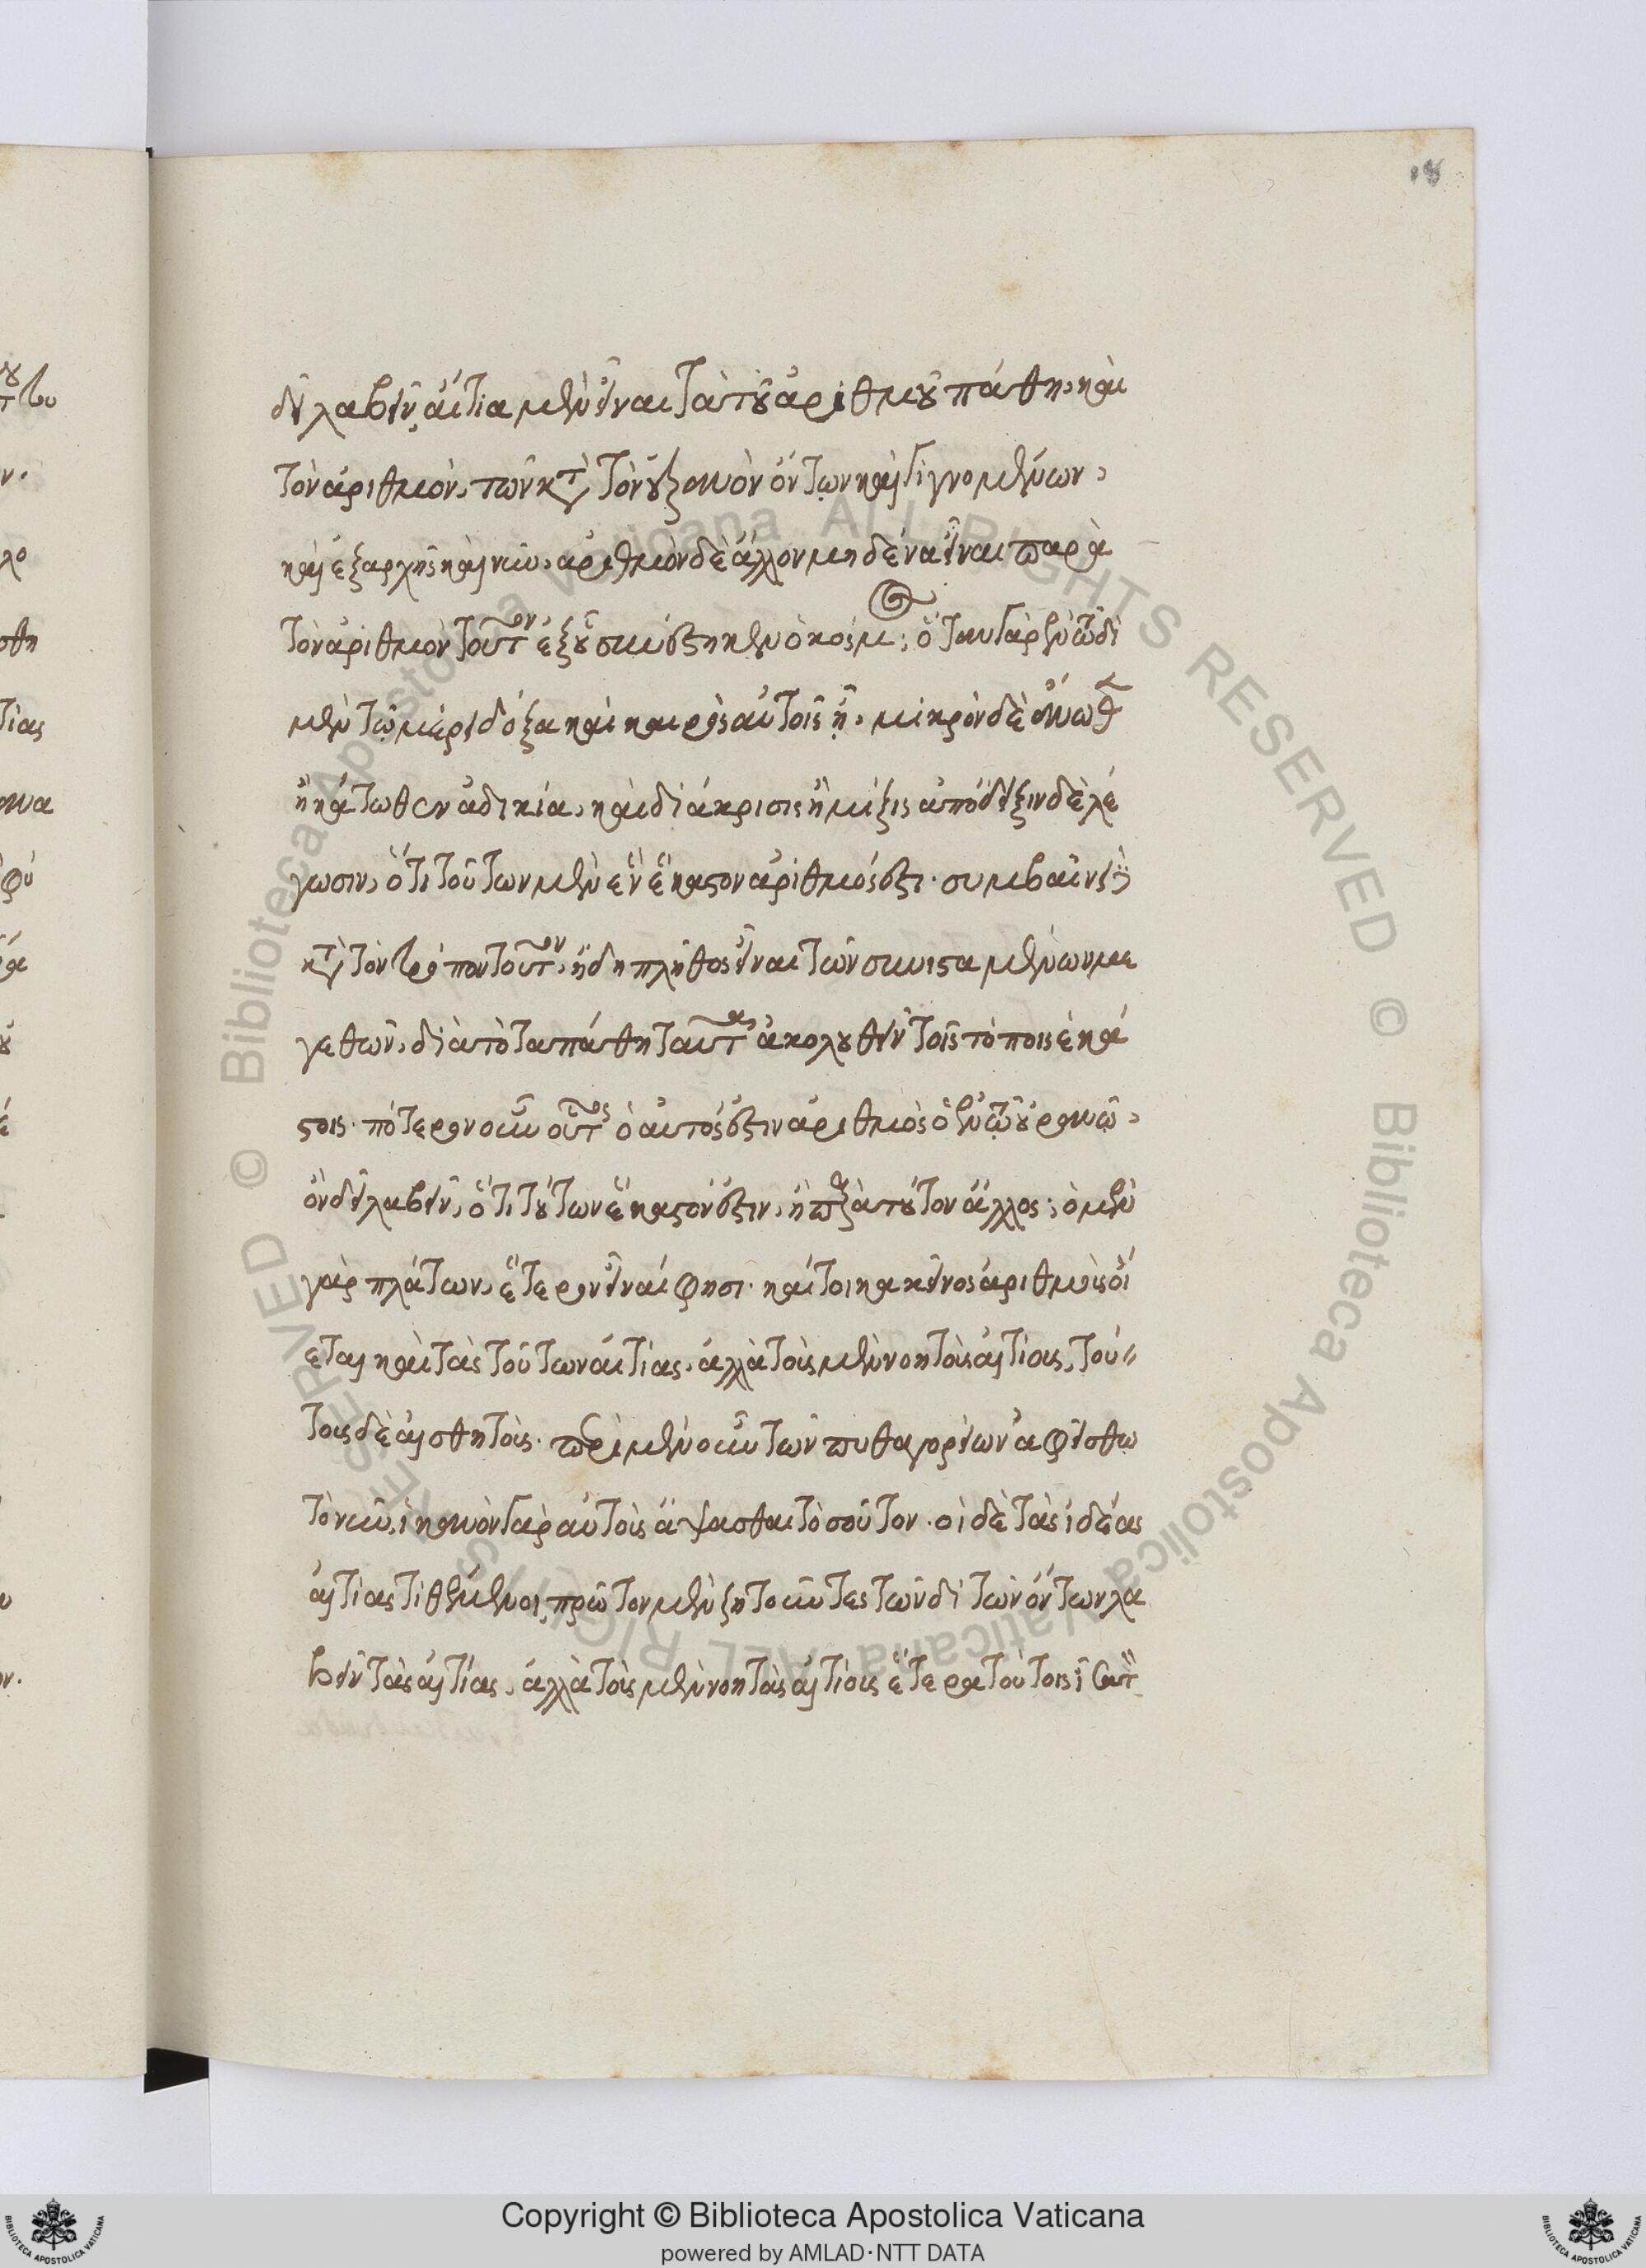 δεῖ λαβεῖν αἴτια μὲν εἶναι τὰ τοῦ ἀριθμοῦ πάθη, καὶ
τὸν ἀριθμὸν, τῶν κατὰ τὸν οὐρανὸν ὄντων καὶ γιγνομένων,
καὶ ἐξαρχῆς καὶ νῦν, ἀριθμὸν δὲ ἄλλον μηδένα εἶναι παρὰ
τὸν ἀριθμὸν τοῦτον ἐξ οὗ συνέστηκεν ὁ κόσμος; ὅταν γὰρ ἐν τῳδὶ
μὲν τῷ μέρει δόξα καὶ καιρὸς αὐτοῖς ᾖ, μικρὸν δὲ ἄνωθεν
ἢ κάτωθεν ἀδικία, καὶ διάκρισις ἢ μίξις ἀπόδειξιν δὲ λέ
γωσιν, ὅτι τούτων μὲν ἓν ἕκαστον ἀριθμός ἐστι· συμβαίνει δὲ
κατὰ τὸν τρόπον τοῦτον, ἤδη πλῆθος εἶναι τῶν συνισταμένων με
γεθῶν, διὰ τὸ τὰ πάθη ταῦτα ἀκολουθεῖν τοῖς τόποις ἑκά
στοις· πότερον οὖν οὗτος ὁ αὐτός ἐστιν ἀριθμὸς ὁ ἐν τῷ οὐρανῷ,
ὃν δεῖ λαβεῖν, ὅτι τούτων ἕκαστόν ἐστιν, ἢ παρὰ τοῦτον ἄλλος; ὁ μὲν
γὰρ πλάτων, ἕτερον εἶναί φησι· καίτοι κἀκεῖνος ἀριθμοὺς οἴ
εται καὶ ταῦτα εἶναι καὶ τὰς τούτων αἰτίας, ἀλλὰ τοὺς μὲν νοητοὺς αἰτίους, τού
τους δὲ αἰσθητούς· περὶ μὲν οὖν τῶν πυθαγορείων ἀφείσθω
τὸ νῦν, ἱκανὸν γὰρ αὐτοῖς ἅψασθαι τοσοῦτον· οἱ δὲ τὰς ἰδέας
αἰτίας τιθέμενοι, πρῶτον μὲν ζητοῦντες τῶν δὶ τῶν ὄντων λα
βεῖν τὰς αἰτίας, ἀλλὰ τοὺς μὲν νοητὰς αἰτίους ἕτερα τούτοις ἴσα